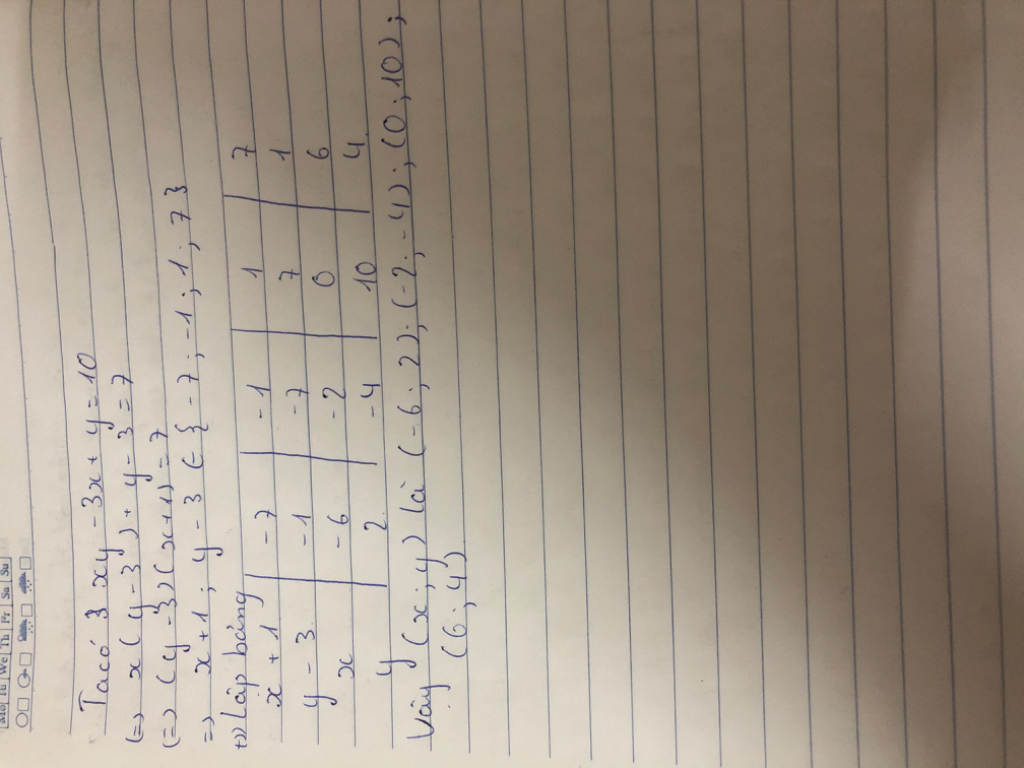 We Th Fr Sa Su
Ta có 3 xy - 3x + y = 10
(=) x(y-3) + y - 3 = 7
(=) (y-3)(x+1) = 7
=> x+1 ; y-3 ∈ { -7 ; -1 ; 1 ; 7 }
+) Lập bảng
x + 1 | -7 | -1 | 1 | 7
y - 3 | -1 | -7 | 7 | 1
x | -6 | -2 | 0 | 6
y | 2 | -4 | 10 | 4
Vậy (x ; y) là (-6 ; 2) ; (-2 ; -4) ; (0 ; 10) ;
(6 ; 4)